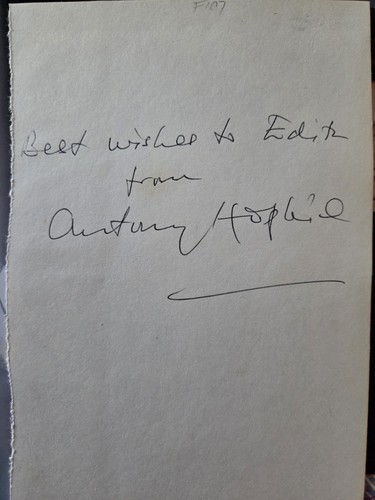 F/A7
Best wishes to Edith
from
Antony Hopkins